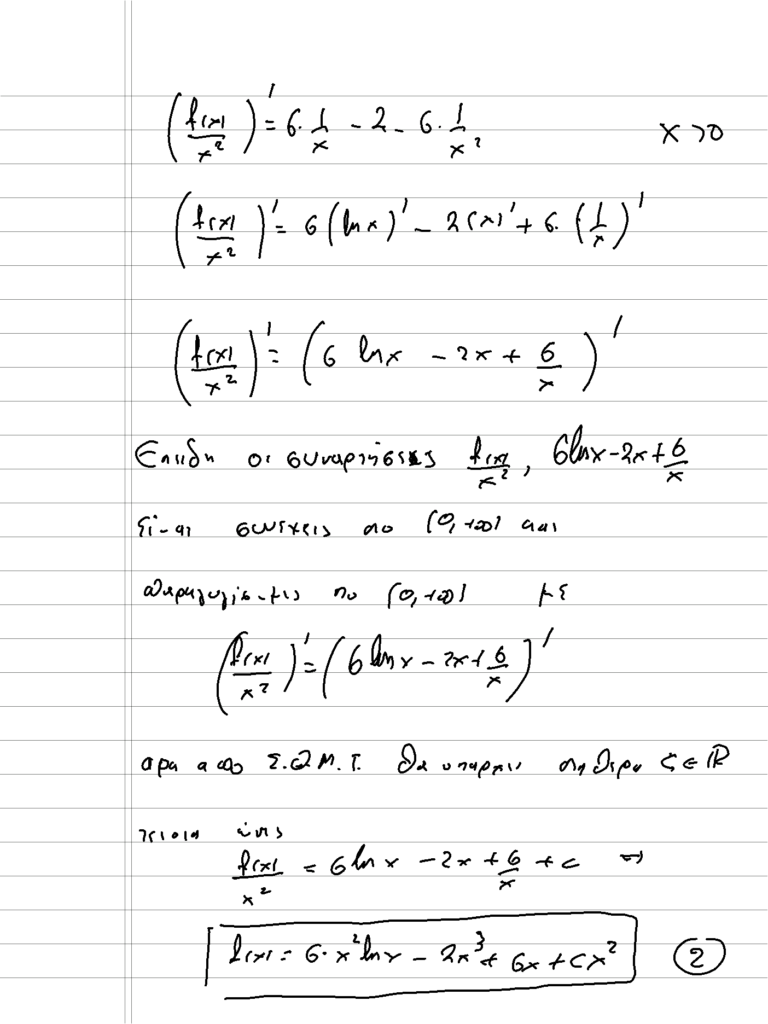 (f(x)/x²)' = 6·1/x - 2 - 6·1/x² x>0
(f(x)/x²)' = 6(lnx)' - 2(x)' + 6·(1/x)'
(f(x)/x²)' = (6 lnx - 2x + 6/x)'
Επειδη οι συναρτησεις f(x)/x², 6lnx-2x+6/x
είναι συνεχεις στο (0,+∞) και
παραγωγίσιμες στο (0,+∞) με
(f(x)/x²)' = (6lnx - 2x + 6/x)'
αρα απο Σ.Θ.Μ.Τ. θα υπαρχει σταθερα c∈ℝ
τετοια ώστε
f(x)/x² = 6lnx - 2x + 6/x + c ⇒
f(x) = 6·x²lnx - 2x³ + 6x + cx² (2)